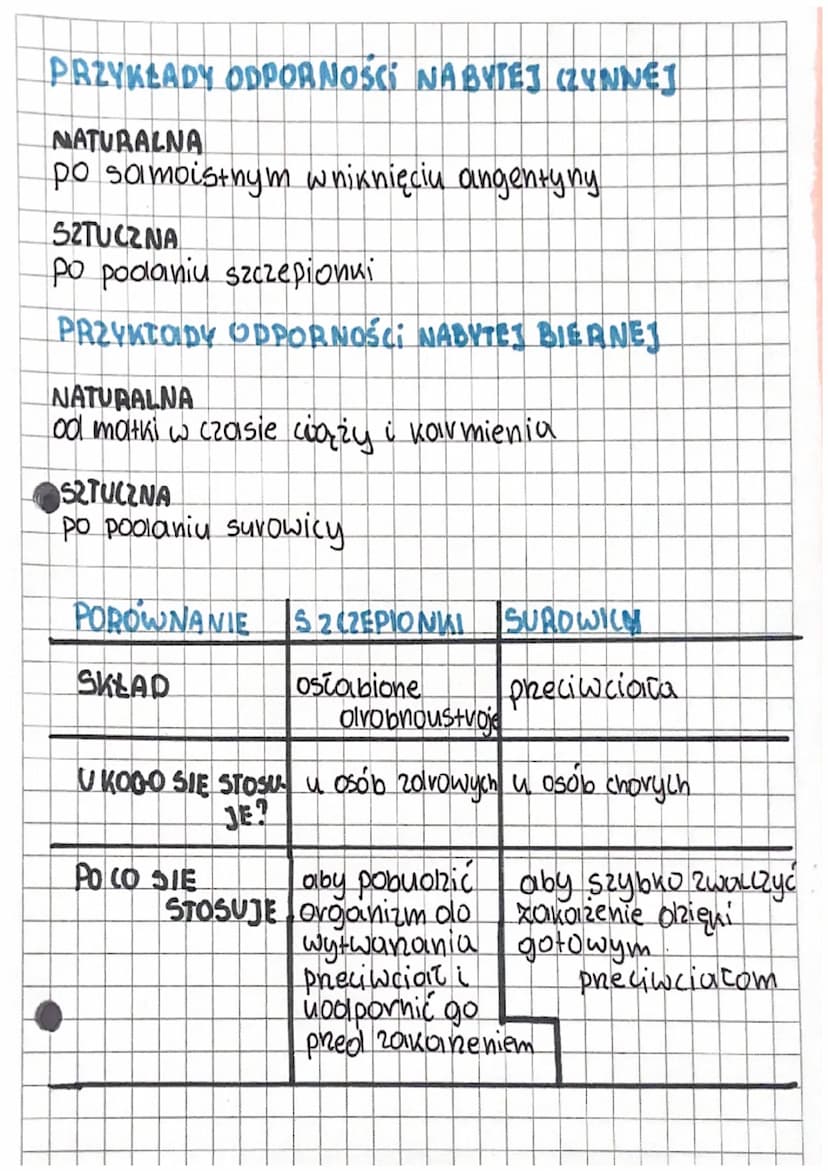 PRZYKŁADY ODPORNOŚCi NABYTEJ CZYNNEJ
NATURALNA
po samoistnym wniknięciu angentyny
SZTUCZNA
po podaniu szczepionki
PRZYKŁaDY ODPORNOŚCi NABYTEJ BIERNEJ
NATURALNA
od matki w czasie ciąży i karmienia
SZTUCZNA
po podaniu surowicy
PORÓWNANIE SZCZEPIONKI SUROWICY
SKŁAD osłabione przeciwciała
drobnoustroje
U KOGO SIĘ STOSU u osób zdrowych u osób chorych
JE?
PO CO SIE aby pobudzić aby szybko zwalczyć
STOSUJE organizm do zakażenie dzięki
wytwarzania gotowym
przeciwciał i przeciwciałom
uodpornić go
przed zakażeniem